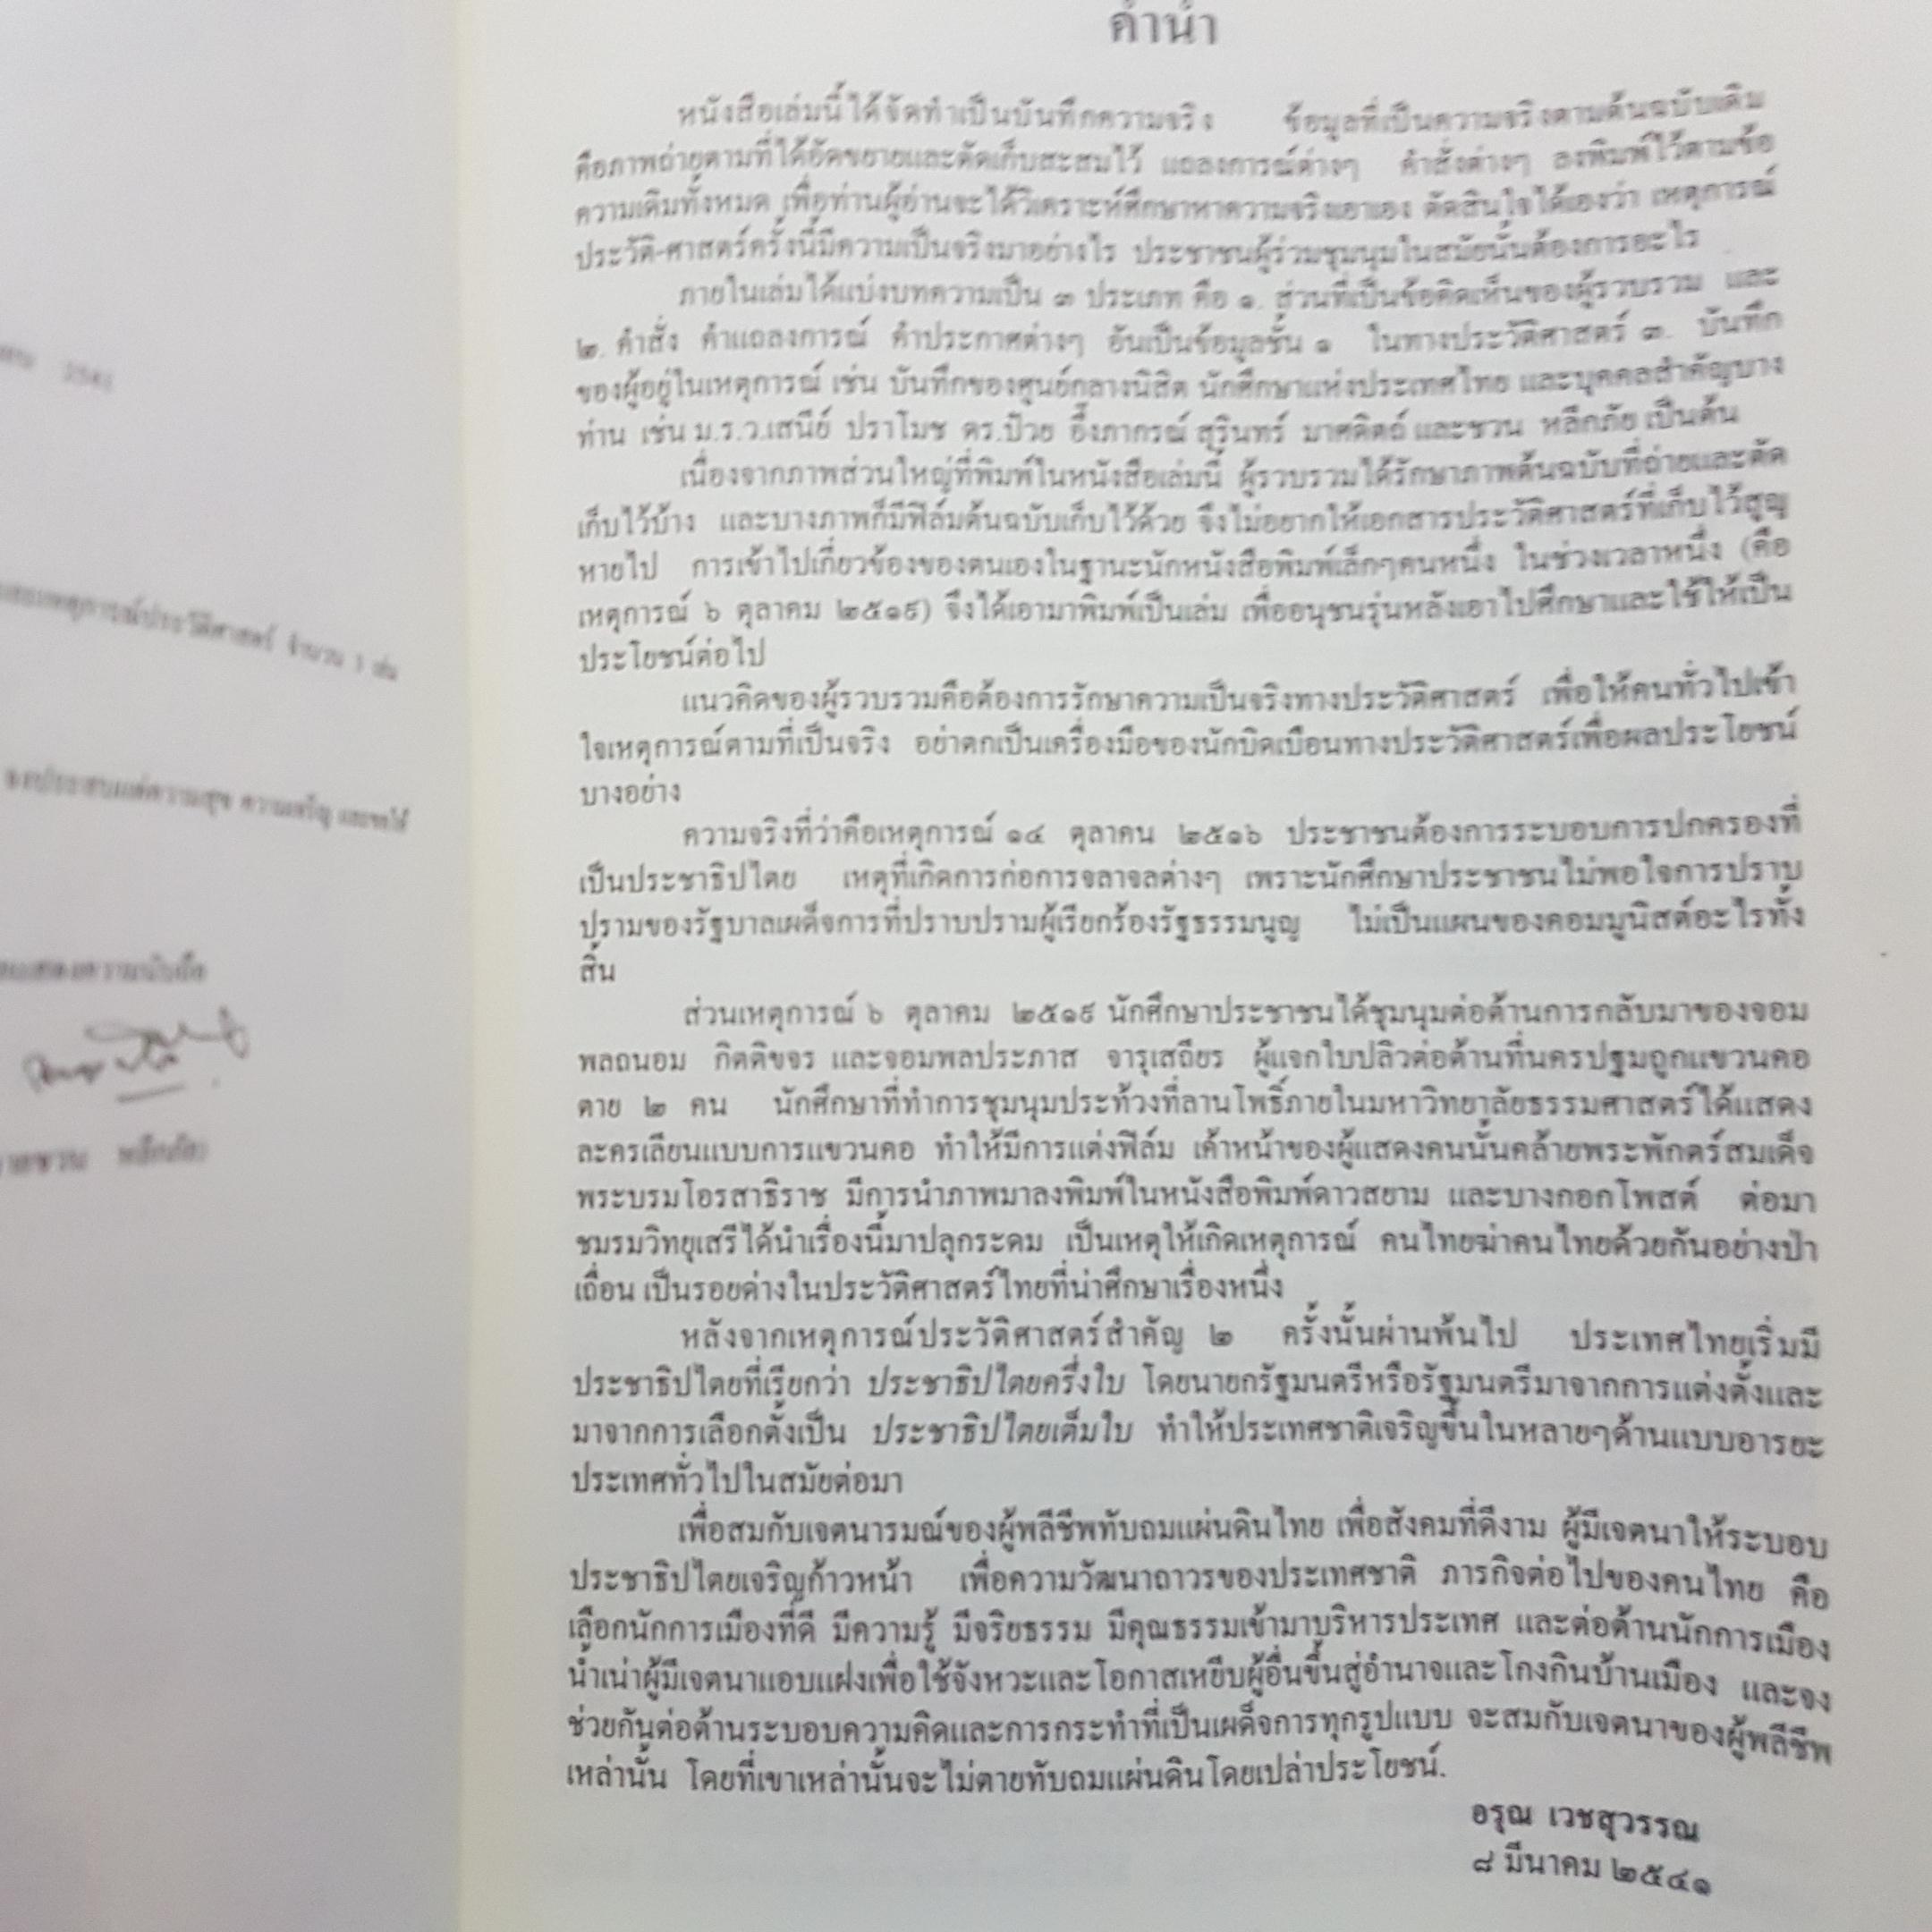 2541
เหตุการณ์ประวัติศาสตร์ จำนวน 1 เล่ม
จงประสบแต่ความสุข ความเจริญ และขอให้
แสดงความนับถือ
ชวน หลีกภัย)
คำนำ
หนังสือเล่มนี้ได้จัดทำเป็นบันทึกความจริง ข้อมูลที่เป็นความจริงตามต้นฉบับเดิม
คือภาพถ่ายตามที่ได้อัดขยายและตัดเก็บสะสมไว้ แถลงการณ์ต่างๆ คำสั่งต่างๆ ลงพิมพ์ไว้ตามข้อ
ความเดิมทั้งหมด เพื่อท่านผู้อ่านจะได้วิเคราะห์ศึกษาหาความจริงเอาเอง ตัดสินใจได้เองว่า เหตุการณ์
ประวัติ-ศาสตร์ครั้งนี้มีความเป็นจริงมาอย่างไร ประชาชนผู้ร่วมชุมนุมในสมัยนั้นต้องการอะไร
ภายในเล่มได้แบ่งบทความเป็น ๓ ประเภท คือ ๑. ส่วนที่เป็นข้อคิดเห็นของผู้รวบรวม และ
๒. คำสั่ง คำแถลงการณ์ คำประกาศต่างๆ อันเป็นข้อมูลชั้น ๑ ในทางประวัติศาสตร์ ๓. บันทึก
ของผู้อยู่ในเหตุการณ์ เช่น บันทึกของศูนย์กลางนิสิต นักศึกษาแห่งประเทศไทย และบุคคลสำคัญบาง
ท่าน เช่น ม.ร.ว.เสนีย์ ปราโมช ดร.ป๋วย อึ๊งภากรณ์ สุรินทร์ มาศดิตถ์ และชวน หลีกภัย เป็นต้น
เนื่องจากภาพส่วนใหญ่ที่พิมพ์ในหนังสือเล่มนี้ ผู้รวบรวมได้รักษาภาพต้นฉบับที่ถ่ายและตัด
เก็บไว้บ้าง และบางภาพก็มีฟิล์มต้นฉบับเก็บไว้ด้วย จึงไม่อยากให้เอกสารประวัติศาสตร์ที่เก็บไว้สูญ
หายไป การเข้าไปเกี่ยวข้องของตนเองในฐานะนักหนังสือพิมพ์เล็กๆคนหนึ่ง ในช่วงเวลาหนึ่ง (คือ
เหตุการณ์ ๖ ตุลาคม ๒๕๑๙) จึงได้เอามาพิมพ์เป็นเล่ม เพื่ออนุชนรุ่นหลังเอาไปศึกษาและใช้ให้เป็น
ประโยชน์ต่อไป
แนวคิดของผู้รวบรวมคือต้องการรักษาความเป็นจริงทางประวัติศาสตร์ เพื่อให้คนทั่วไปเข้า
ใจเหตุการณ์ตามที่เป็นจริง อย่าตกเป็นเครื่องมือของนักบิดเบือนทางประวัติศาสตร์เพื่อผลประโยชน์
บางอย่าง
ความจริงที่ว่าคือเหตุการณ์ ๑๔ ตุลาคน ๒๕๑๖ ประชาชนต้องการระบอบการปกครองที่
เป็นประชาธิปไตย เหตุที่เกิดการก่อการจลาจลต่างๆ เพราะนักศึกษาประชาชนไม่พอใจการปราบ
ปรามของรัฐบาลเผด็จการที่ปราบปรามผู้เรียกร้องรัฐธรรมนูญ ไม่เป็นแผนของคอมมูนิสต์อะไรทั้ง
สิ้น
ส่วนเหตุการณ์ ๖ ตุลาคม ๒๕๑๙ นักศึกษาประชาชนได้ชุมนุมต่อต้านการกลับมาของจอม
พลถนอม กิตติขจร และจอมพลประภาส จารุเสถียร ผู้แจกใบปลิวต่อต้านที่นครปฐมถูกแขวนคอ
ตาย ๒ คน นักศึกษาที่ทำการชุมนุมประท้วงที่ลานโพธิ์ภายในมหาวิทยาลัยธรรมศาสตร์ได้แสดง
ละครเลียนแบบการแขวนคอ ทำให้มีการแต่งฟิล์ม เค้าหน้าของผู้แสดงคนนั้นคล้ายพระพักตร์สมเด็จ
พระบรมโอรสาธิราช มีการนำภาพมาลงพิมพ์ในหนังสือพิมพ์ดาวสยาม และบางกอกโพสต์ ต่อมา
ชมรมวิทยุเสรีได้นำเรื่องนี้มาปลุกระดม เป็นเหตุให้เกิดเหตุการณ์ คนไทยฆ่าคนไทยด้วยกันอย่างป่า
เถื่อน เป็นรอยด่างในประวัติศาสตร์ไทยที่น่าศึกษาเรื่องหนึ่ง
หลังจากเหตุการณ์ประวัติศาสตร์สำคัญ ๒ ครั้งนั้นผ่านพ้นไป ประเทศไทยเริ่มมี
ประชาธิปไตยที่เรียกว่า ประชาธิปไตยครึ่งใบ โดยนายกรัฐมนตรีหรือรัฐมนตรีมาจากการแต่งตั้งและ
มาจากการเลือกตั้งเป็น ประชาธิปไตยเต็มใบ ทำให้ประเทศชาติเจริญขึ้นในหลายๆด้านแบบอารยะ
ประเทศทั่วไปในสมัยต่อมา
เพื่อสมกับเจตนารมณ์ของผู้พลีชีพทับถมแผ่นดินไทย เพื่อสังคมที่ดีงาม ผู้มีเจตนาให้ระบอบ
ประชาธิปไตยเจริญก้าวหน้า เพื่อความวัฒนาถาวรของประเทศชาติ ภารกิจต่อไปของคนไทย คือ
เลือกนักการเมืองที่ดี มีความรู้ มีจริยธรรม มีคุณธรรมเข้ามาบริหารประเทศ และต่อต้านนักการเมือง
น้ำเน่าผู้มีเจตนาแอบแฝงเพื่อใช้จังหวะและโอกาสเหยียบผู้อื่นขึ้นสู่อำนาจและโกงกินบ้านเมือง และจง
ช่วยกันต่อต้านระบอบความคิดและการกระทำที่เป็นเผด็จการทุกรูปแบบ จะสมกับเจตนาของผู้พลีชีพ
เหล่านั้น โดยที่เขาเหล่านั้นจะไม่ตายทับถมแผ่นดินโดยเปล่าประโยชน์.
อรุณ เวชสุวรรณ
๘ มีนาคม ๒๕๔๑